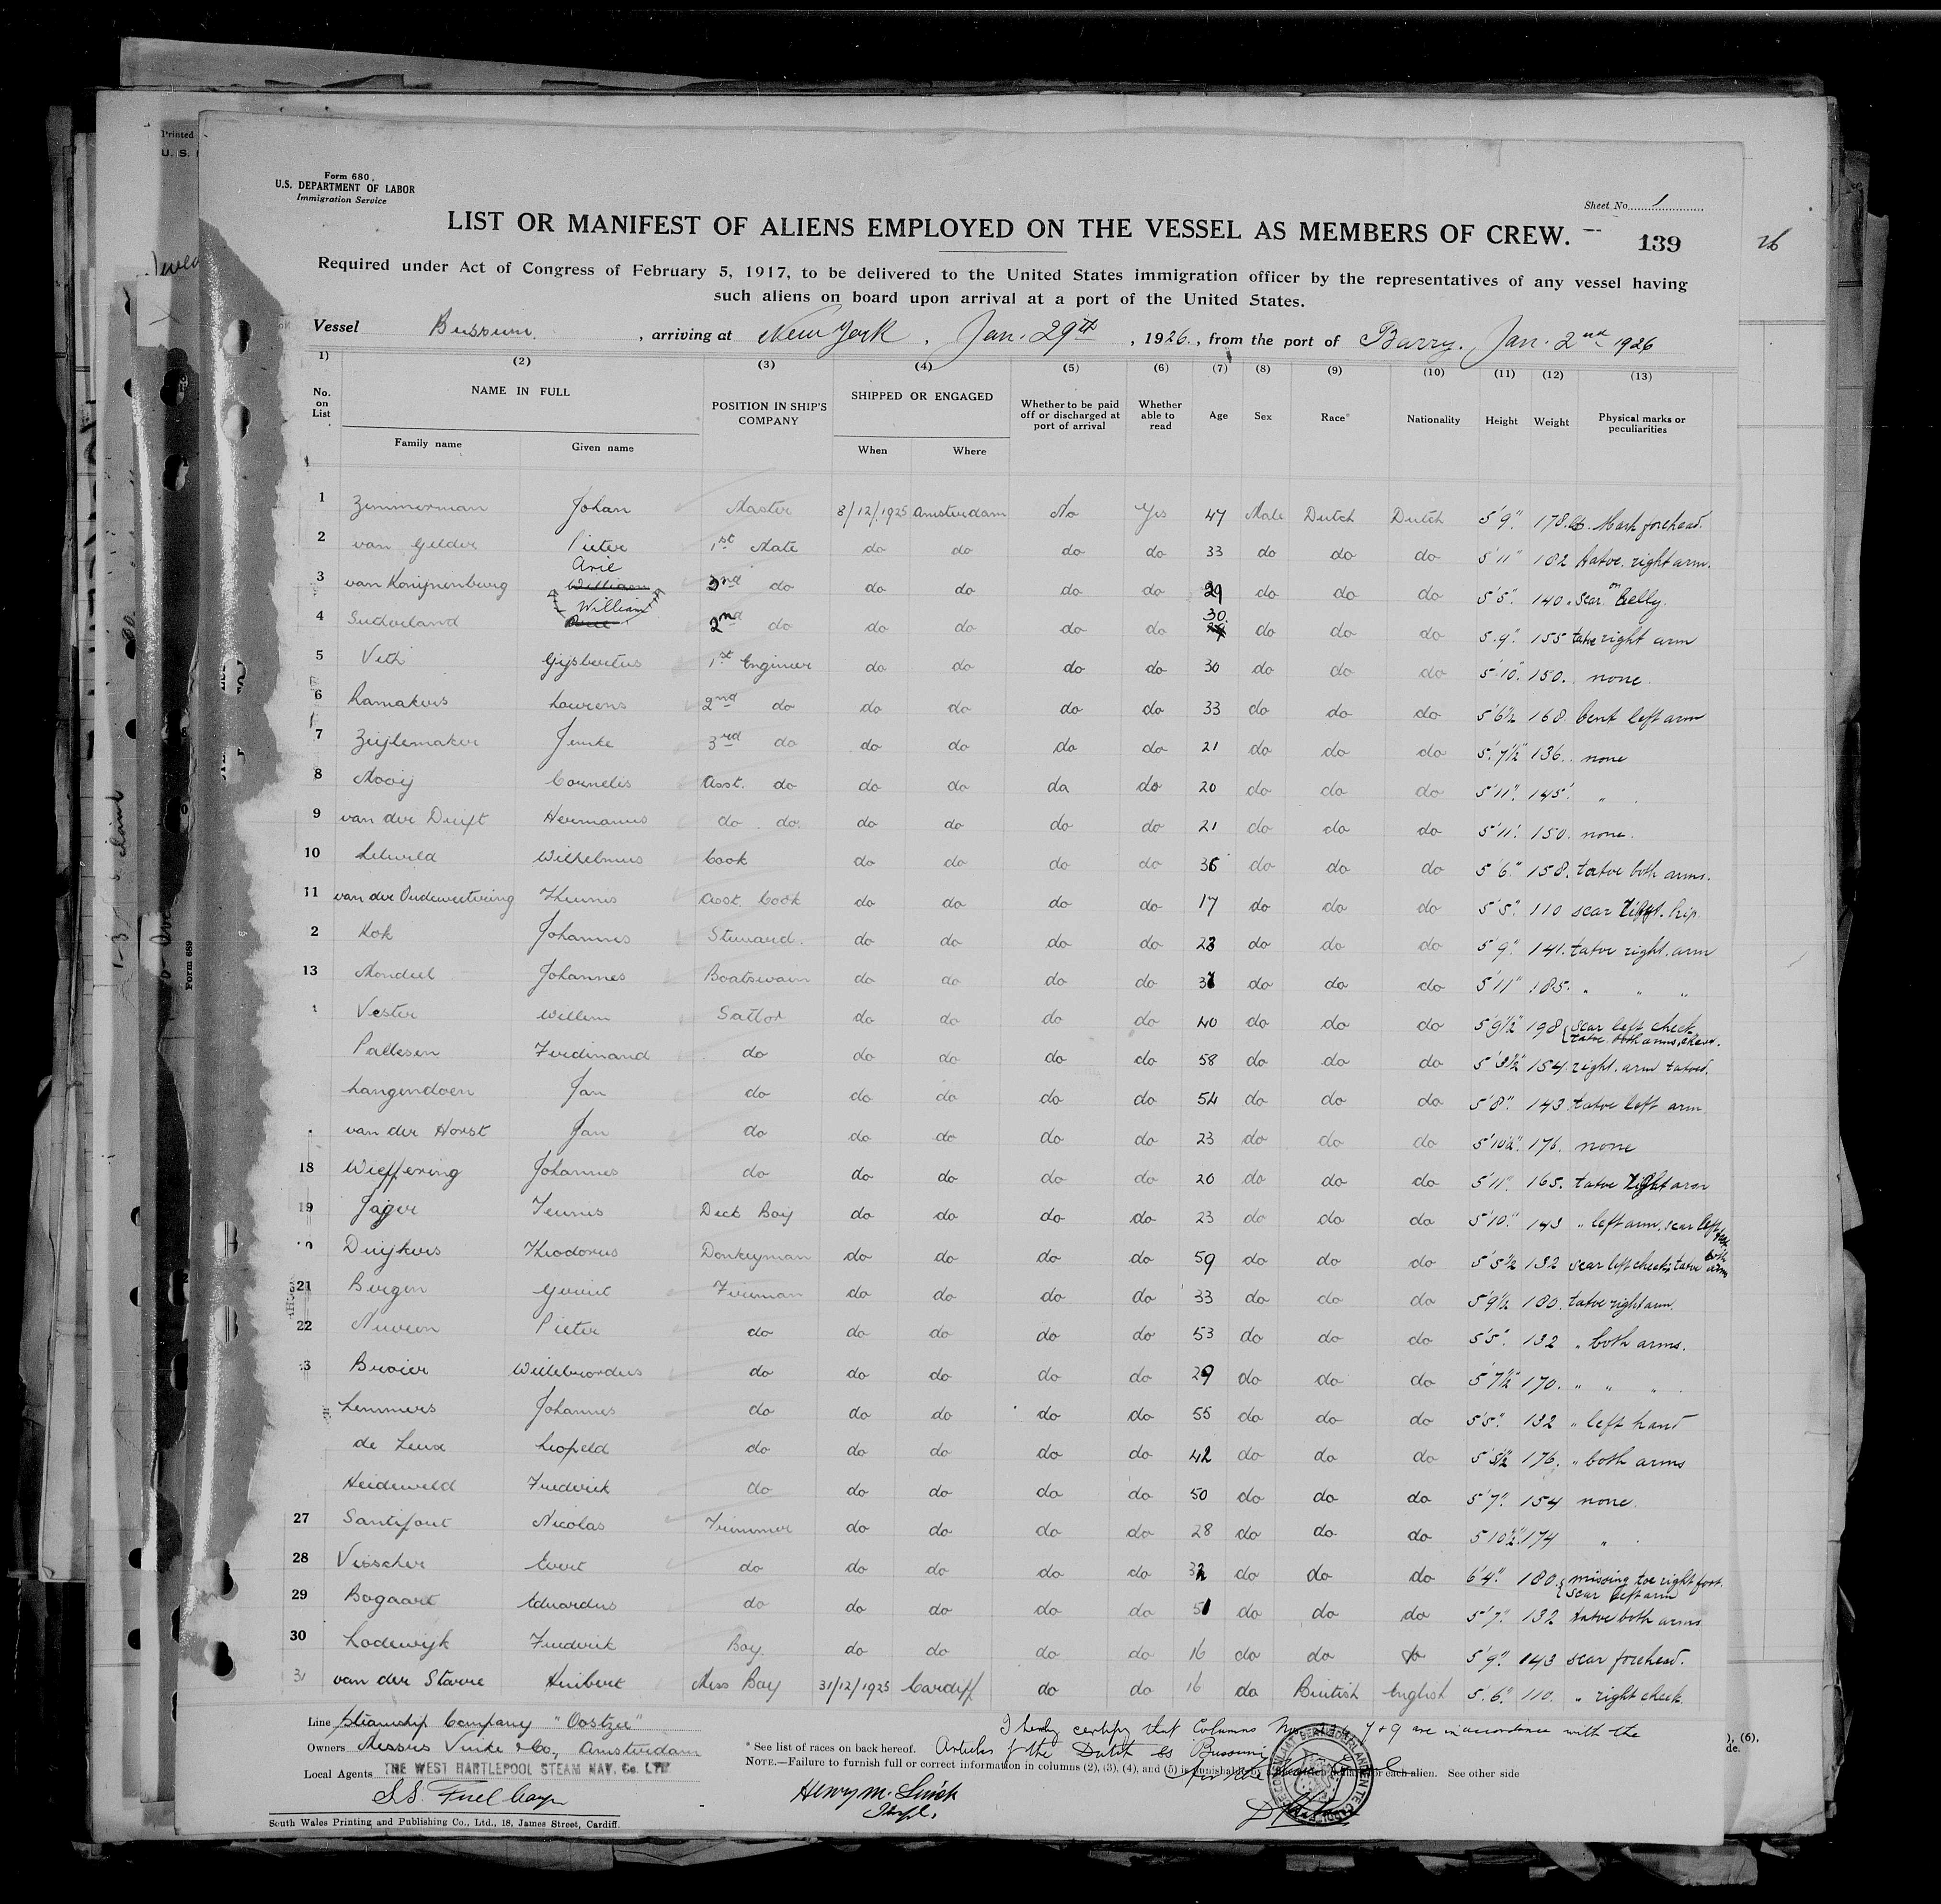 Form 680.
U.S. DEPARTMENT OF LABOR
Immigration Service
Sheet No. 1
LIST OR MANIFEST OF ALIENS EMPLOYED ON THE VESSEL AS MEMBERS OF CREW.
139
26
Required under Act of Congress of February 5, 1917, to be delivered to the United States immigration officer by the representatives of any vessel having
such aliens on board upon arrival at a port of the United States.
Vessel Bussum, arriving at New York, Jan. 29th, 1926, from the port of Barry. Jan. 2nd 1926
1) (2) (3) (4) (5) (6) (7) (8) (9) (10) (11) (12) (13)
No. on List NAME IN FULL POSITION IN SHIP'S COMPANY SHIPPED OR ENGAGED Whether to be paid off or discharged at port of arrival Whether able to read Age Sex Race* Nationality Height Weight Physical marks or peculiarities
Family name Given name When Where
1 Zimmerman Johan Master 8/12/1925 Amsterdam No Yes 47 Male Dutch Dutch 5'9" 178 lb. Mark forehead.
2 van Gelder Pieter 1st Mate do do do do 33 do do do 5'11" 182 tatoe. right arm.
3 van Konijnenburg Arie William 2nd do do do do do 29 do do do 5'5". 140. scar on belly.
4 Suderland William Arie 2nd do do do do do 30. do do do 5.9". 155 tatoe right arm
5 Veth Gijsbertus 1st Engineer do do do do 30 do do do 5'10". 150. none.
6 Ramakers Lourens 2nd do do do do do 33 do do do 5'6½ 168 bent left arm
7 Zeijlemaker Jemke 3rd do do do do do 21 do do do 5'.7½" 136. none
8 Mooij Cornelis Asst. do do do do do 20 do do do 5'11". 145. "
9 van der Drift Hermanus do do. do do do do 21 do do do 5'11". 150. none.
10 Lelieveld Wilhelmus Cook do do do do 36 do do do 5'6". 158. tatoe both arms.
11 van der Oudeweetering Theunis Asst. Cook do do do do 17 do do do 5'5". 110 scar right. hip.
2 Kok Johannes Steward. do do do do 23 do do do 5'9". 141. tatoe right. arm
13 Mondeel Johannes Boatswain do do do do 31 do do do 5'11" 185. " " "
Vester Willem Sailor do do do do 40 do do do 5'9½" 198 scar left cheek
tatoe both arms, chest.
Pallesen Ferdinand do do do do do 58 do do do 5'8½" 154. right. arm tatoed.
Langendoen Jan do do do do do 54 do do do 5'8". 143. tatoe left arm
van der Horst Jan do do do do do 23 do do do 5'10½". 176. none
18 Wieffering Johannes do do do do do 20 do do do 5'11". 165. tatoe right arm
19 Jager Teunis Deck Boy do do do do 23 do do do 5'10". 143 " left arm. scar left
Duijkers Theodorus Donkeyman do do do do 59 do do do 5'5½ 132 scar left cheek tatoe both arms
21 Bergen Gerrit Fireman do do do do 33 do do do 5'9½ 180. tatoe right arm.
22 Nuveen Pieter do do do do do 53 do do do 5'5". 132 " both arms.
3 Breier Willebrordus do do do do do 29 do do do 5'7½" 170. " " "
Lemmers Johannes do do do do do 55 do do do 5'5". 132 " left hand
de Leux Leopold do do do do do 42 do do do 5'5½ 176. " both arms
Heideweld Frederik do do do do do 50 do do do 5'7". 154 none.
27 Santifort Nicolas Trimmer do do do do 28 do do do 5'10½" 174 "
28 Visscher Evert do do do do do 32 do do do 6'4". 180. missing toe right foot.
scar left arm
29 Bogaart Eduardus do do do do do 51 do do do 5'7". 132 tatoe both arms
30 Lodewijk Frederik Boy. do do do do 16 do do do 5'9". 143 scar forehead.
31 van der Starre Huibert Mess Boy 31/12/1925 Cardiff do do 16 do British English 5'.6". 110. " right cheek.
Line Steamship Company "Oostzee"
Owners Messrs Vinke & Co., Amsterdam
Local Agents THE WEST HARTLEPOOL STEAM NAV. Co. LTD
I hereby certify that Columns 7 + 9 are in accordance with the
Articles of the Dutch ss Bussum
* See list of races on back hereof.
NOTE.—Failure to furnish full or correct information in columns (2), (3), (4), and (5) is punishable by for each alien. See other side
Henry M.
South Wales Printing and Publishing Co., Ltd., 18, James Street, Cardiff.
Form 689
Printed
U. S.
), (6),
de.